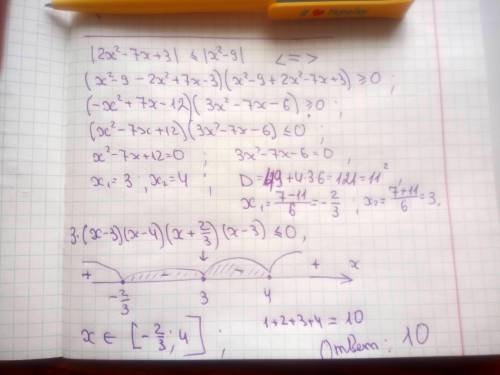 |2x²-7x+3| ≤ |x²-9| <=>
(x²-9-2x²+7x-3)(x²-9+2x²-7x+3) ≥0 ;
(-x²+7x-12)(3x²-7x-6) ≥0 ;
(x²-7x+12)(3x²-7x-6) ≤0 ;
x²-7x+12=0 ; 3x²-7x-6=0 ,
x₁=3 ; x₂=4 ; D=49+4·36=121=11² ,
x₁=(7-11)/6=-2/3 , x₂=(7+11)/6=3.
3·(x-3)(x-4)(x+2/3)(x-3) ≤0 ,
+ - - + x
-2/3 3 4
x ∈ [-2/3 ; 4] ; 1+2+3+4=10
Ответ: 10